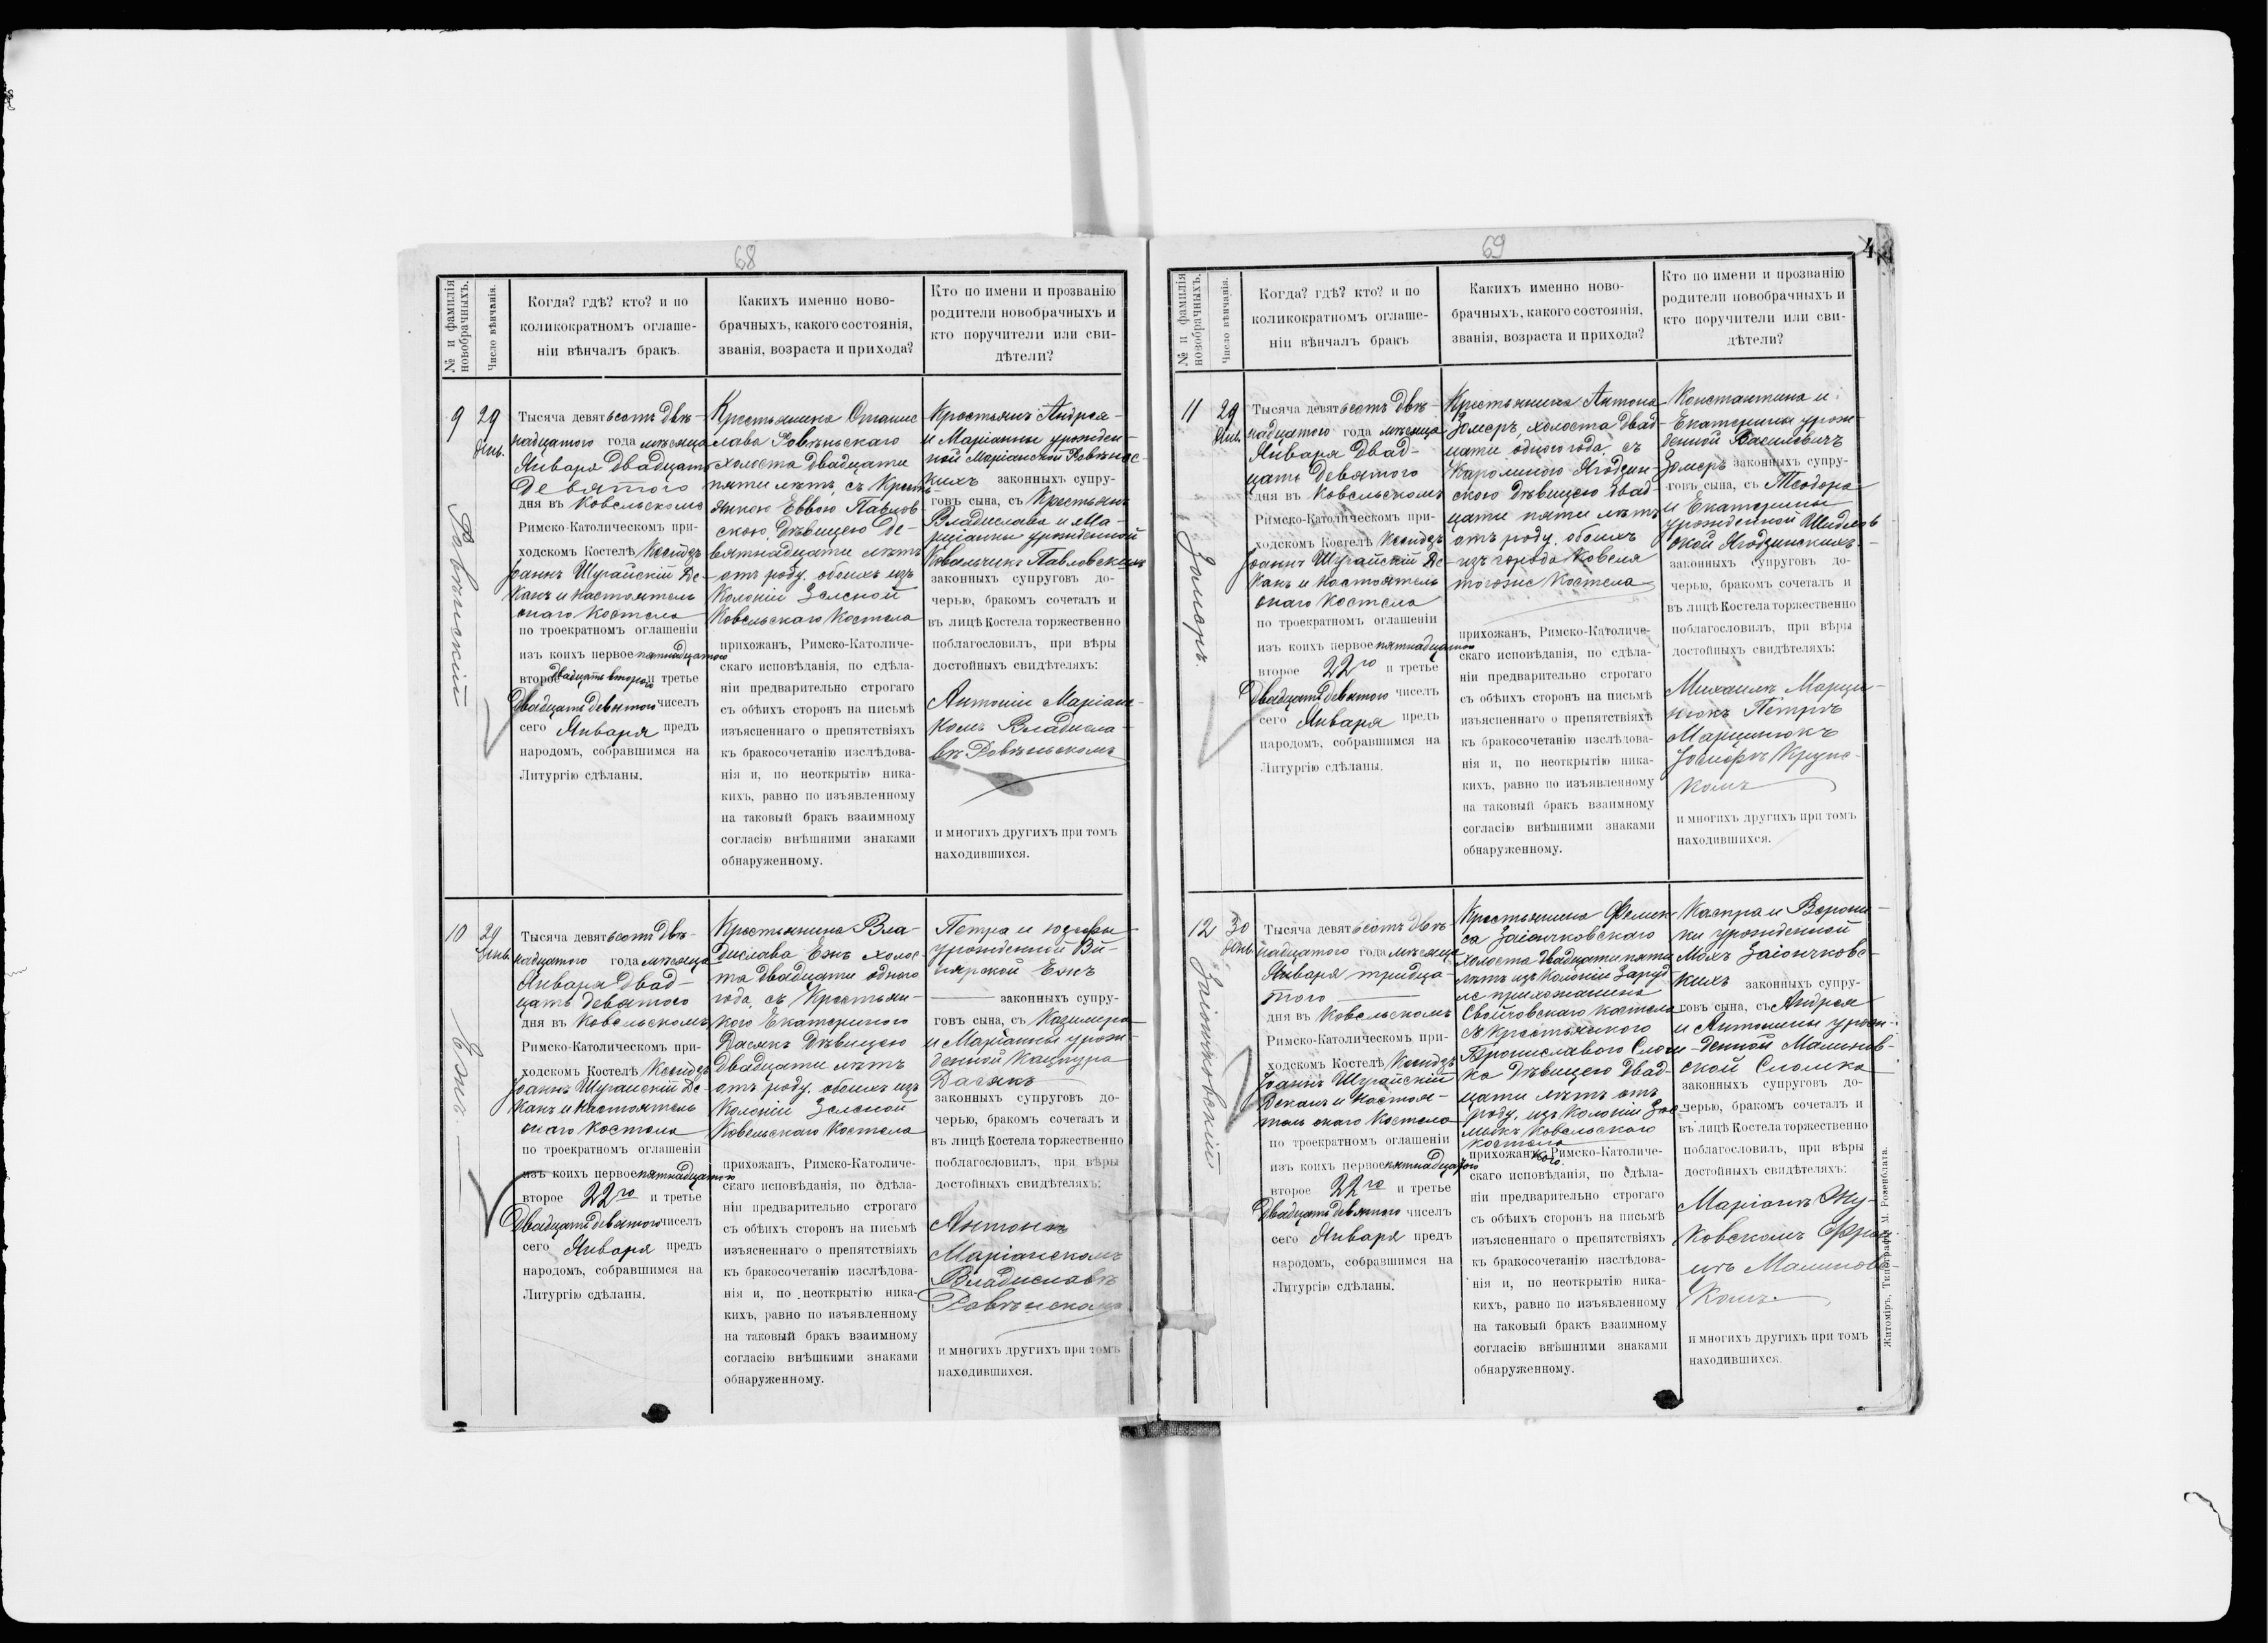 68
№ и фамилія новобрачныхъ.
Число вѣнчанія.
Когда? гдѣ? кто? и по
коликократномъ оглаше-
ніи вѣнчалъ бракъ.
Какихъ именно ново-
брачныхъ, какого состоянія,
званія, возраста и прихода?
Кто по имени и прозванію
родители новобрачныхъ и
кто поручители или сви-
дѣтели?
9
29
Янв.
Ровѣнскій
Тысяча девятьсотъ двѣ-
надцатого года мѣсяца
Января двадцать
девятого
дня въ Ковельскомъ
Римско-Католическомъ при-
ходскомъ Костелѣ Ксендзъ
Іоаннъ Шурайскій Де-
канъ и настоятель
онаго костела
по троекратномъ оглашеніи
изъ коихъ первое пятнадцатого
второе двадцать второго и третье
двадцать девятого чиселъ
сего Января предъ
народомъ, собравшимся на
Литургію сдѣланы.
Крестьянина Станис
лава Ровѣньскаго
холоста двадцати
пяти лѣтъ, съ Кресть-
янкою Еввою Павлов-
скою, дѣвицею де-
вятнадцати лѣтъ
отъ роду, обоихъ изъ
Колоніи Зеленой
Ковельскаго Костела
прихожанъ, Римско-Католиче-
скаго исповѣданія, по сдѣла-
ніи предварительно строгаго
съ обѣихъ сторонъ на письмѣ
изъясненнаго о препятствіяхъ
къ бракосочетанію изслѣдова-
нія и, по неоткрытію ника-
кихъ, равно по изъявленному
на таковый бракъ взаимному
согласію внѣшними знаками
обнаруженному.
Крестьянъ Андрея
и Маріанны урожден-
ной Маріанской Ровѣнс-
кихъ законныхъ супру-
говъ сына, съ Крестьянъ
Владислава и Ма-
ріанны урожденной
Ковальчикъ Павловскихъ
законныхъ супруговъ до-
черью, бракомъ сочеталъ и
въ лицѣ Костела торжественно
поблагословилъ, при вѣры
достойныхъ свидѣтеляхъ:
Антоніи Маріанс-
комъ Владисла-
вѣ Ровѣньскомъ
и многихъ другихъ при томъ
находившихся.
10
29
Янв.
Ежъ.
Тысяча девятьсотъ двѣ-
надцатого года мѣсяца
Января двад-
цать девятого
дня въ Ковельскомъ
Римско-Католическомъ при-
ходскомъ Костелѣ Ксендзъ
Іоаннъ Шурайскій Де-
канъ и настоятель
онаго костела
по троекратномъ оглашеніи
изъ коихъ первое пятнадцатого
второе 22го и третье
двадцать девятого чиселъ
сего Января предъ
народомъ, собравшимся на
Литургію сдѣланы.
Крестьянина Вла-
дислава Ежъ холос-
та двадцати одного
года, съ Крестьян-
кою Екатериною
Дасякъ дѣвицею
двадцати лѣтъ
отъ роду, обоихъ изъ
Колоніи Зеленой
Ковельскаго Костела
прихожанъ, Римско-Католиче-
скаго исповѣданія, по сдѣла-
ніи предварительно строгаго
съ обѣихъ сторонъ на письмѣ
изъясненнаго о препятствіяхъ
къ бракосочетанію изслѣдова-
нія и, по неоткрытію ника-
кихъ, равно по изъявленному
на таковый бракъ взаимному
согласію внѣшними знаками
обнаруженному.
Петра и Юзефы
урожденной
Ежъ
законныхъ супру-
говъ сына, съ Казимира
и Маріанны урож-
денной Кацпура
Дасякъ
законныхъ супруговъ до-
черью, бракомъ сочеталъ и
въ лицѣ Костела торжественно
поблагословилъ, при вѣры
достойныхъ свидѣтеляхъ:
Антонѣ
Маріанскомъ
Владиславѣ
Ровѣнскомъ
и многихъ другихъ при томъ
находившихся.
69
4
№ и фамилія новобрачныхъ.
Число вѣнчанія.
Когда? гдѣ? кто? и по
коликократномъ оглаше-
ніи вѣнчалъ бракъ
Какихъ именно ново-
брачныхъ, какого состоянія,
званія, возраста и прихода?
Кто по имени и прозванію
родители новобрачныхъ и
кто поручители или сви-
дѣтели?
11
29
Янв.
Зомеръ.
Тысяча девятьсотъ двѣ-
надцатого года мѣсяца
Января двад-
цать девятого
дня въ Ковельскомъ
Римско-Католическомъ при-
ходскомъ Костелѣ Ксендзъ
Іоаннъ Шурайскій Де-
канъ и настоятель
онаго костела
по троекратномъ оглашеніи
изъ коихъ первое пятнадцатого
второе 22го и третье
двадцать девятого чиселъ
сего Января предъ
народомъ, собравшимся на
Литургію сдѣланы.
Крестьянина Антона
Зомеръ, холоста двад-
цати одного года, съ
Каролиною Ягодзин-
скою дѣвицею двад-
цати пяти лѣтъ
отъ роду, обоихъ
изъ города Ковеля
тогоже Костела
прихожанъ, Римско-Католиче-
скаго исповѣданія, по сдѣла-
ніи предварительно строгаго
съ обѣихъ сторонъ на письмѣ
изъясненнаго о препятствіяхъ
къ бракосочетанію изслѣдова-
нія и, по неоткрытію ника-
кихъ, равно по изъявленному
на таковый бракъ взаимному
согласію внѣшними знаками
обнаруженному.
Константина и
Екатерины урож-
денной Василовичъ
Зомеръ законныхъ супру-
говъ сына, съ Теодора
и Екатерины
урожденной Шидлов
ской Ягодзинскихъ
законныхъ супруговъ до-
черью, бракомъ сочеталъ и
въ лицѣ Костела торжественно
поблагословилъ, при вѣры
достойныхъ свидѣтеляхъ:
Михаилѣ Марци-
нюкъ Петрѣ
Марцинюкъ
Іосифѣ Крупс-
комъ
и многихъ другихъ при томъ
находившихся.
12
30
Янв.
Заіончковскій
Тысяча девятьсотъ двѣ-
надцатого года мѣсяца
Января тридца-
того
дня въ Ковельскомъ
Римско-Католическомъ при-
ходскомъ Костелѣ Ксендзъ
Іоаннъ Шурайскій
Деканъ и настоя-
тель онаго Костела
по троекратномъ оглашеніи
изъ коихъ первое пятнадцатого
второе 22го и третье
двадцать девятого чиселъ
сего Января предъ
народомъ, собравшимся на
Литургію сдѣланы.
Крестьянина Фелик
са Заіончковскаго
холоста двадцати пяти
лѣтъ изъ Колоніи Заруд-
ле прихожанина
костела
съ Крестьянкою
Брониславою Слом-
ка дѣвицею двад-
цати лѣтъ отъ
роду, изъ Колоніи
Ковельского
костела
прихожанкою, Римско-Католиче-
скаго исповѣданія, по сдѣла-
ніи предварительно строгаго
съ обѣихъ сторонъ на письмѣ
изъясненнаго о препятствіяхъ
къ бракосочетанію изслѣдова-
нія и, по неоткрытію ника-
кихъ, равно по изъявленному
на таковый бракъ взаимному
согласію внѣшними знаками
обнаруженному.
Каспра и Верони-
ки урожденной
Мохъ Заіончковс-
кихъ законныхъ супру-
говъ сына, съ Андрея
и Антонины урож-
денной Малинов-
ской Сломка
законныхъ супруговъ до-
черью, бракомъ сочеталъ и
въ лицѣ Костела торжественно
поблагословилъ, при вѣры
достойныхъ свидѣтеляхъ:
Маріанѣ Жу-
ковскомъ Фран-
цѣ Малиновс-
комъ
и многихъ другихъ при томъ
находившихся.
Житоміръ, Типографія М. Розенблата.